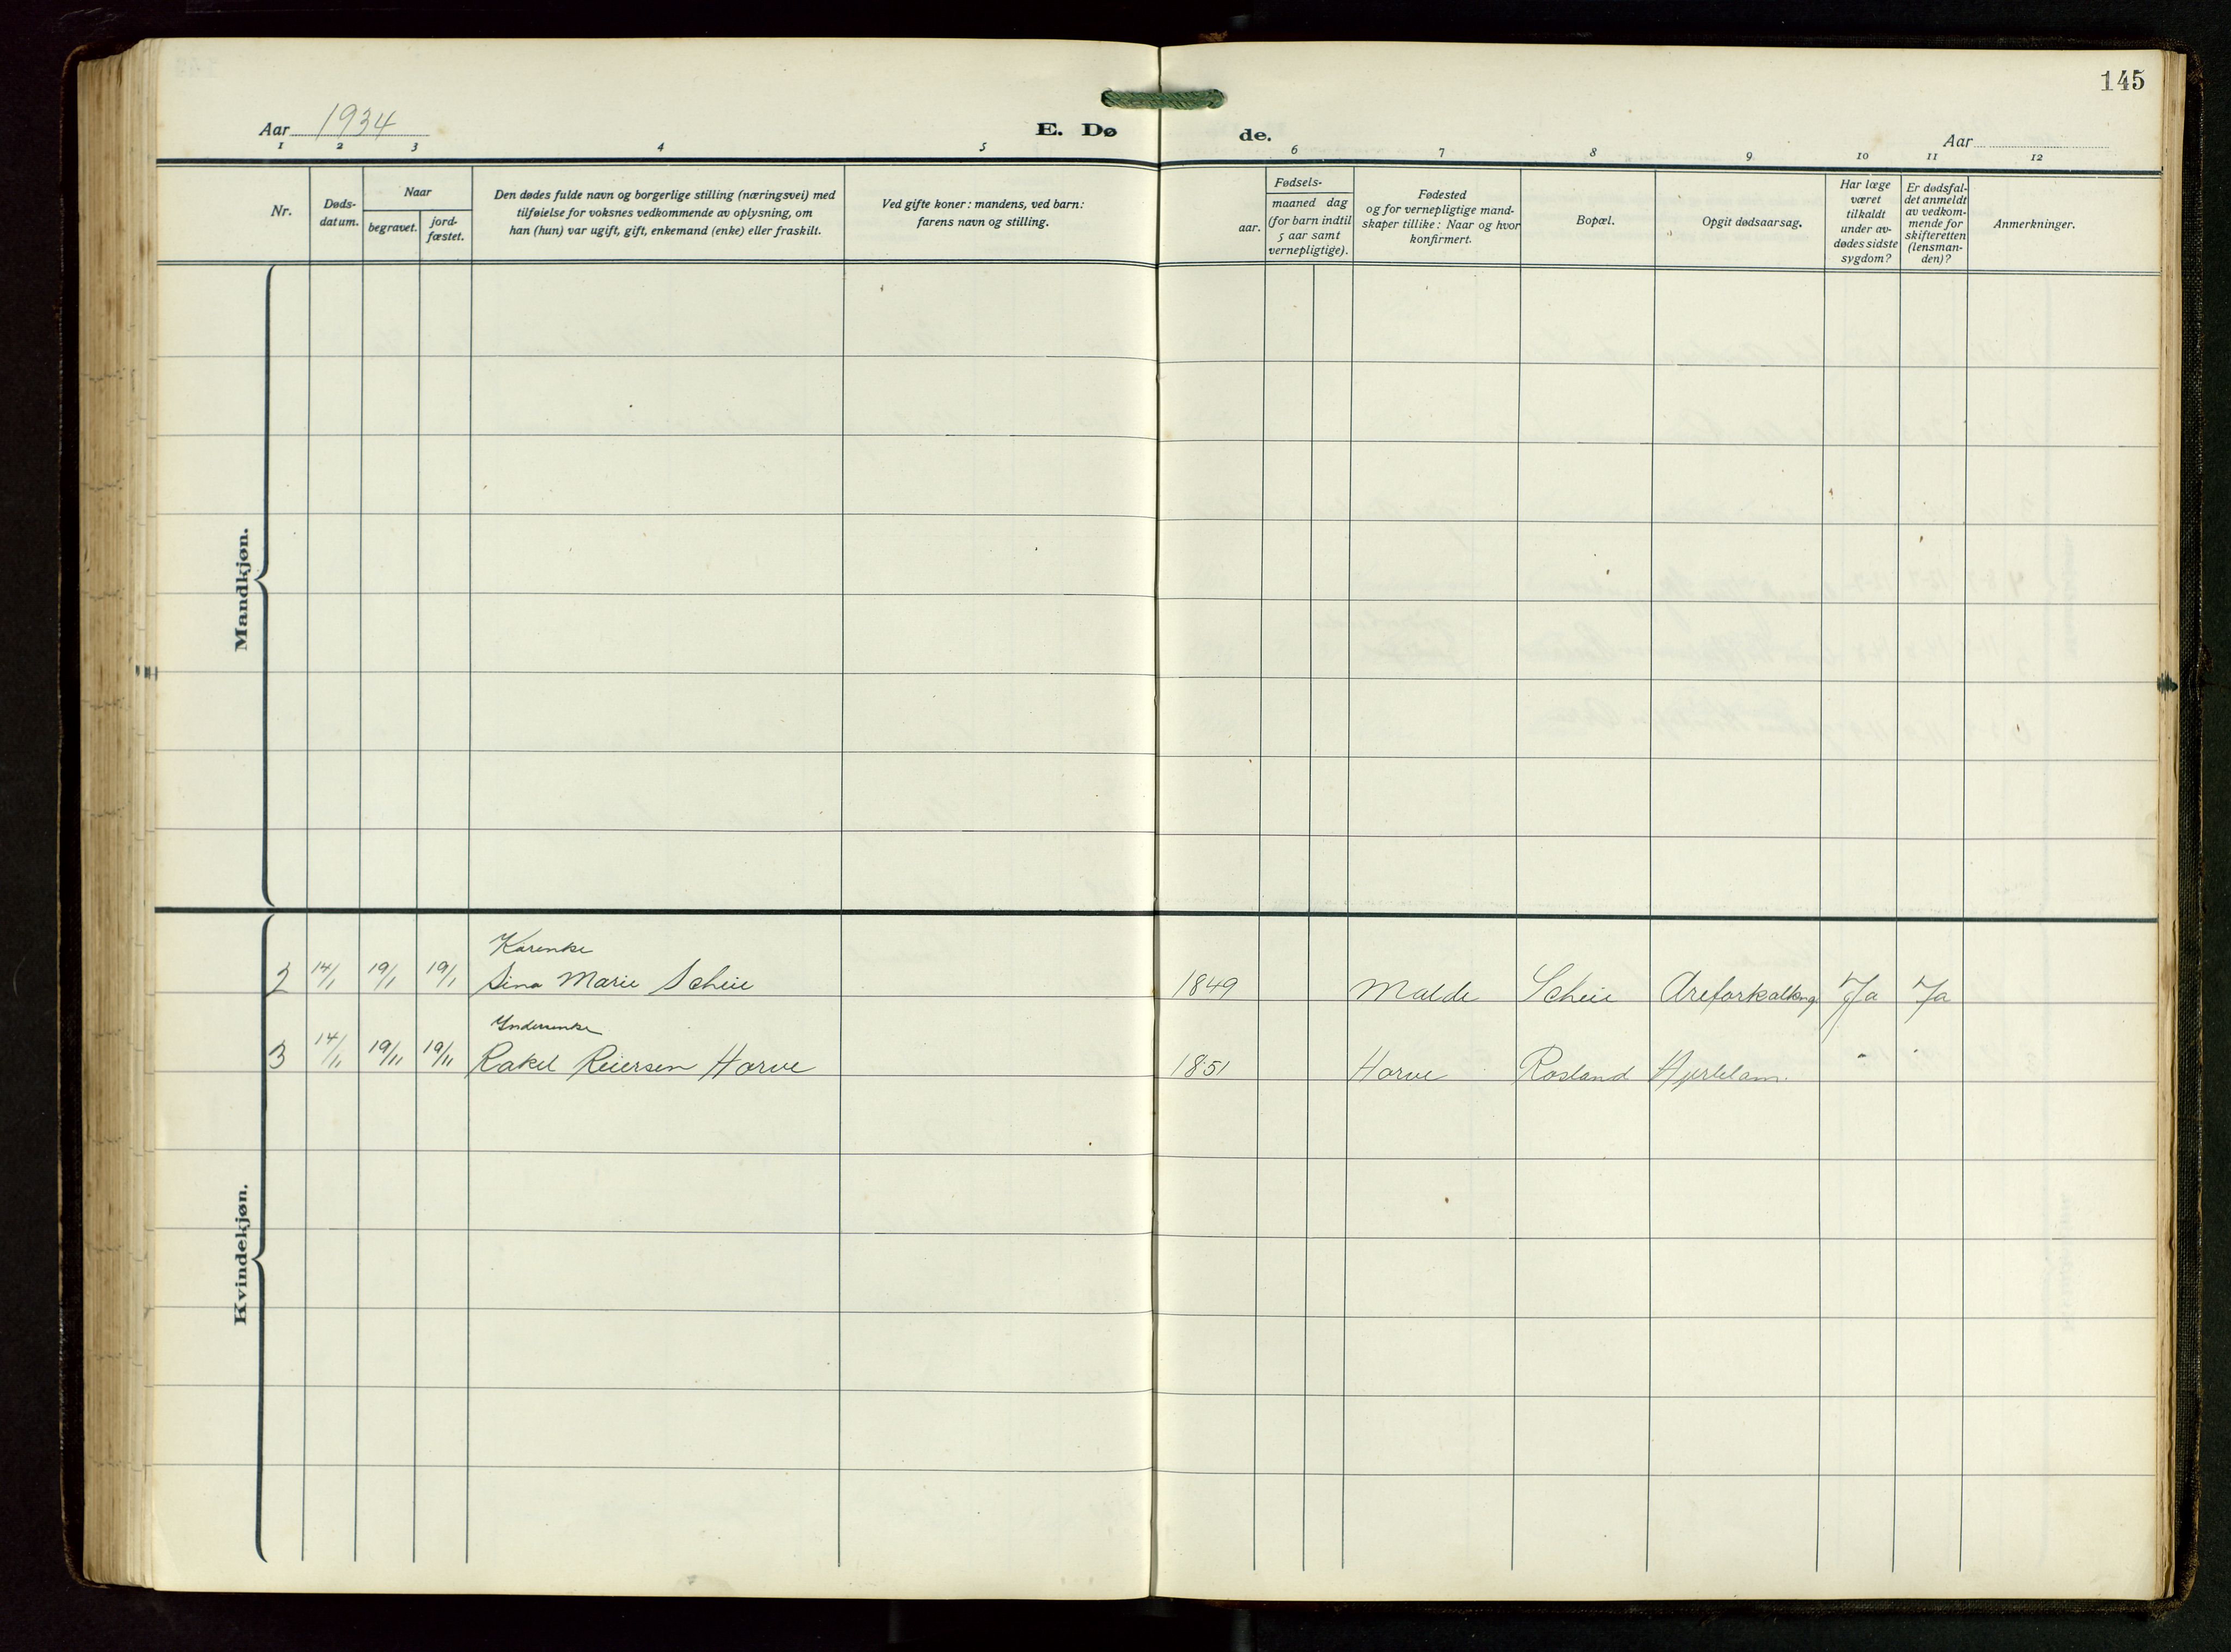 145
Aar 1934
E. Dø
de.
Aar
1 2 3 4 5 6 7 8 9 10 11 12
Nr.
Døds-
datum.
Naar
begravet.
jord-
fæstet.
Den dødes fulde navn og borgerlige stilling (næringsvei) med
tilføielse for voksnes vedkommende av oplysning, om
han (hun) var ugift, gift, enkemand (enke) eller fraskilt.
Ved gifte koner: mandens, ved barn:
farens navn og stilling.
Fødsels-
aar.
maaned dag
(for barn indtil
5 aar samt
vernepligtige).
Fødested
og for vernepligtige mand-
skaper tillike: Naar og hvor
konfirmert.
Bopæl.
Opgit dødsaarsag.
Har læge
været
tilkaldt
under av-
dødes sidste
sygdom?
Er dødsfal-
det anmeldt
av vedkom-
mende for
skifteretten
(lensman-
den)?
Anmerkninger.
Mandkjøn.
Kvindekjøn.
Karenke
2 14/1 19/1 19/1 Sina Marie Scheie 1849 Malde Scheie Areforkalkng. Ja Ja
3 14/11 19/11 19/11 Rakel Reiersen Harve 1851 Harve Rosland Hjertelam. " "